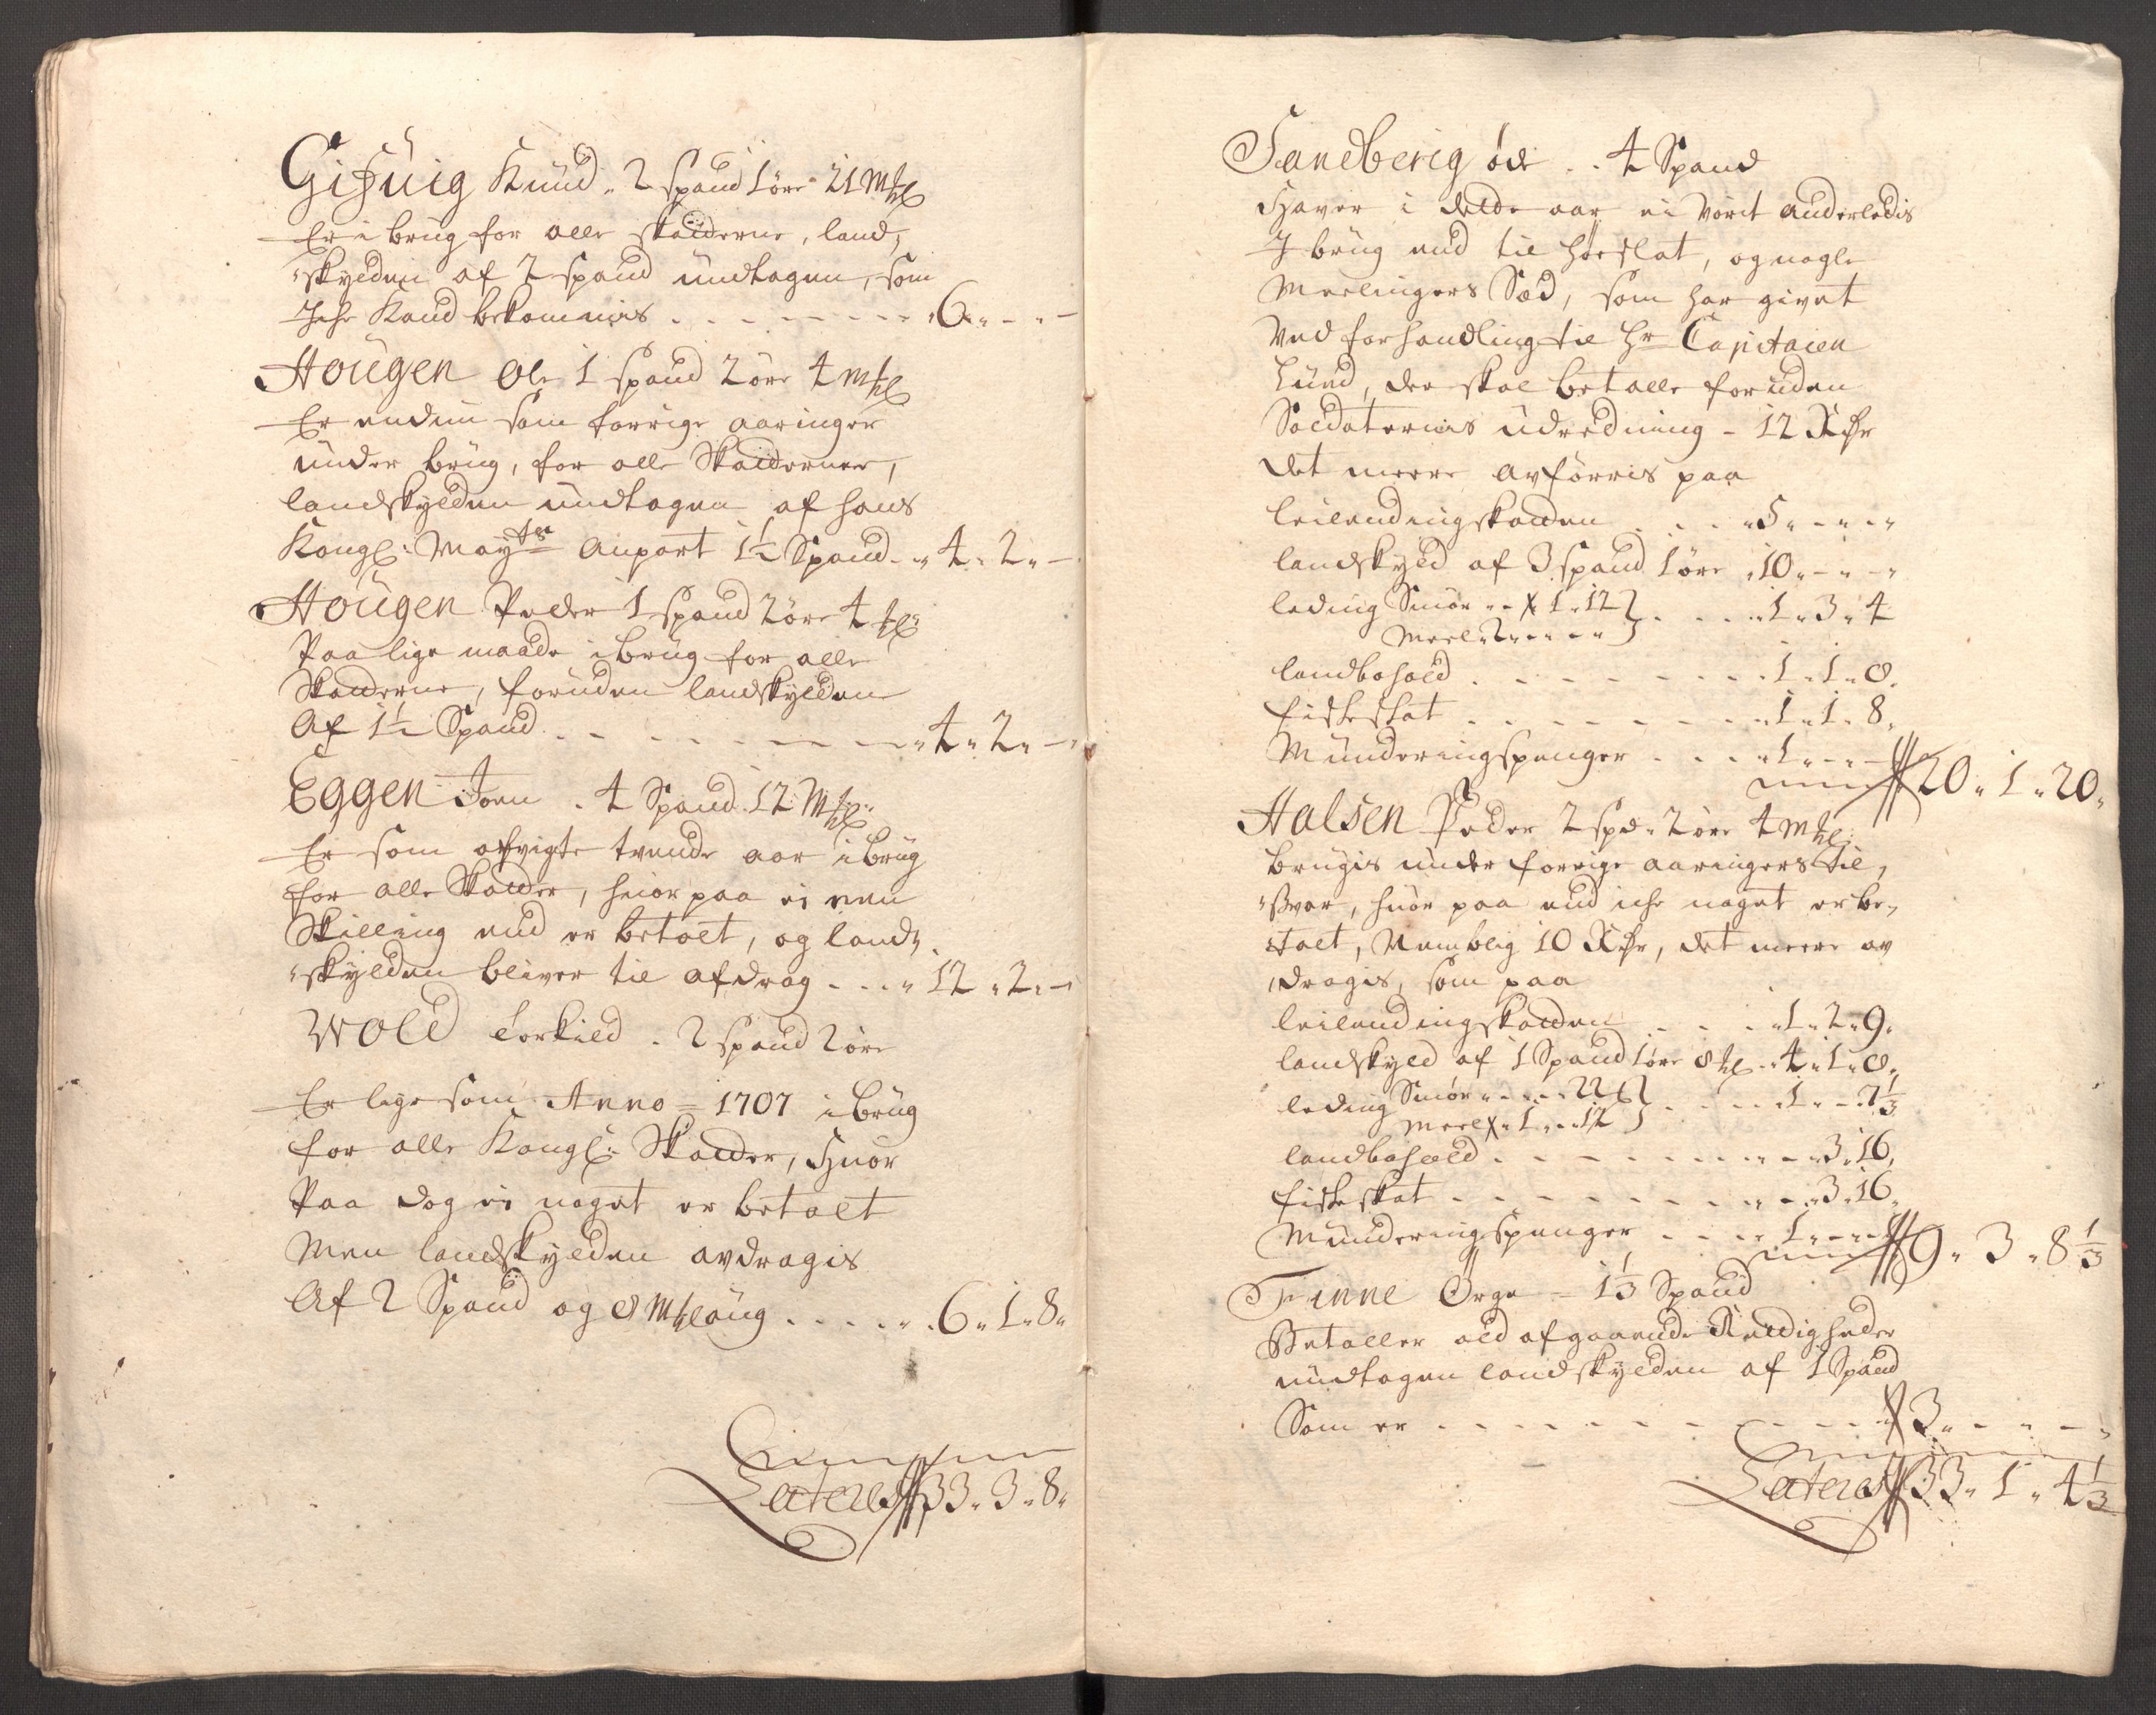 Gisuig Knud „ 2 spand 1 øre 21 Mkl
Er i brug for alle skatterne, land,
„skylden af 2 spand undtagen, som
Iche Kand bekommis . . . . . . . „ 6 „ – „ –
Hougen Ole 1 spand 2 øre 4 mkl
Er endnu som forrige aaringer
under brug, for alle Skatterne,
landskylden undtagen af hans
Kongl: Mayts Anpart 1½ Spand „ 4 „ 2 „ –
Hougen Peder 1 spand 2 øre 4 kl
Paa lige maade i brug for alle
Skatterne, foruden landskylden
Af 1½ Spand . . . . . . . „ 4 „ 2 „ –
Eggen Joen . 4 Spand 12 Mkl
Er som afvigte tvende aar i brug
for alle Skatter, huor paa ei een
Skilling end er betalt, og land,
„skylden bliver til afdrag . . . „ 12 „ 2 „ –
Wold Torkild . 2 spand 2 øre
Er lige som Anno = 1707 i brug
for alle Kongl: Skatter, Huor
Paa dog ei noget er betalt
Men landskylden avdragis
Af 2 Spand og 8 Mklaug . . . . . „ 6 „ 1 „ 8 „
Lateris 33 „ 3 „ 8 „
Sandberig øde . . 4 Spand
Haver i dette aar ei vørit anderledis
I brug end til høeslat, og nogle
Mælingers Sæd, som har givet
Ved forhandling til Hr Capitaien
Lund, der skal betalle foruden
Soldaternis udredning – 12 Rdr
det meere avførris paa
leilendingskatten . . . „ 5 „ – „ – „
landskyld af 3 spand 1 øre „ 10 „ – „ – „
leding Smør „ – 1 „ 12 } . . . „ 1 „ 3 „ 4
Meel „ 2 „ – „ – „
landbohold . . . . . . . „ 1 „ 1 „ 8 „
fiskeskat . . . . . . . „ 1 „ 1 „ 8 „
Munderingspenger . . . „ 1 „ – „ –
20 „ 1 „ 20 „
Halsen Peder 2 spd „ 2 øre 4 Mkl
Brugis under forrige aaringers til,
„svar, huor paa end iche noget er be,
talt, Nemblig 10 Rdr, det meere av
„dragis, som paa
leilendingskatten . . . „ 1 „ 2 „ 9 „
landskyld af 1 Spand 1 øre 8 kl „ 4 „ 1 „ 8 „
leding Smør „ – „ – 22 } . . . „ 1 „ – „ 7⅓
Meel „ 1 „ – „ 12
landbohold . . . . . . . „ – „ 3 „ 16 „
fiskeskat . . . . . . . „ – „ 3 „ 16 „
Munderingspenger . . . „ 1 „ – „ –
9 „ 3 „ 8⅓
Finne Ørge – 1⅓ Spand
Betaller ald afgaaende Rettigheder
undtagen landskylden af 1 Spand
Som er . . . . . . . 3 „ – „ – „
Lateris 33 „ 1 „ 4⅓